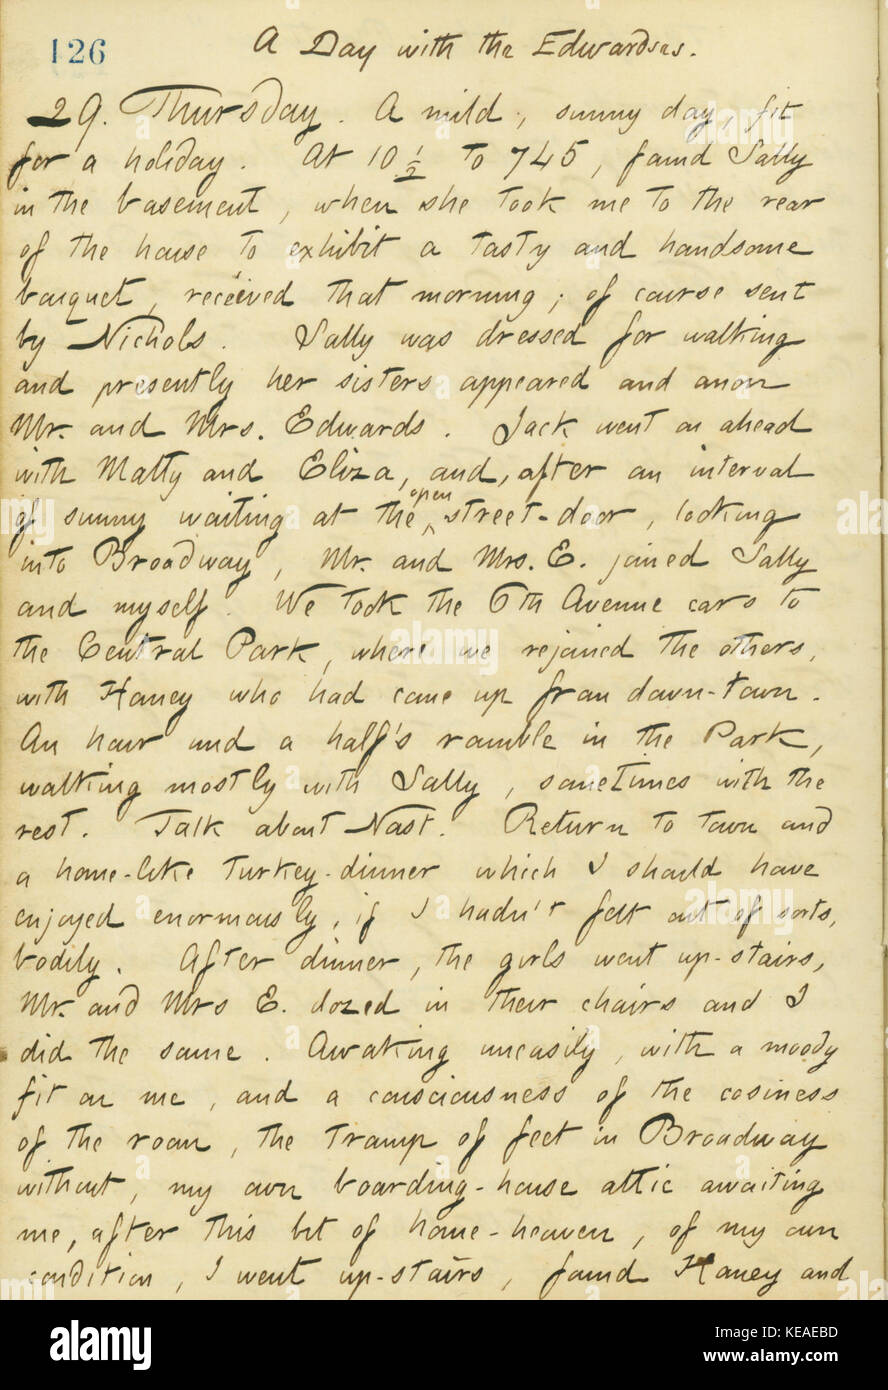 126
A Day with the Edwardses.
29. Thursday. A mild, sunny day, fit
for a holiday. At 10 1/2 to 745, found Sally
in the basement, when she took me to the rear
of the house to exhibit a tasty and handsome
bouquet, received that morning; of course sent
by Nichols. Sally was dressed for walking
and presently her sisters appeared and anon
Mr. and Mrs. Edwards. Jack went on ahead
with Matty and Eliza, and, after an interval
of sunny waiting at the open street-door, looking
into Broadway, Mr. and Mrs. E. joined Sally
and myself. We took the 6th Avenue cars to
the Central Park, where we rejoined the others,
with Haney who had come up from down-town.
An hour and a half's ramble in the Park,
walking mostly with Sally, sometimes with the
rest. Talk about Nast. Return to town and
a home-like turkey-dinner which I should have
enjoyed enormously, if I hadn't felt out of sorts,
bodily. After dinner, the girls went up-stairs,
Mr. and Mrs E. dozed in their chairs and I
did the same. Awaking uneasily, with a moody
fit on me, and a consciousness of the cosiness
of the room, the tramp of feet in Broadway
without, my own boarding-house attic awaiting
me, after this bit of home-heaven, of my own
condition, I went up-stairs, found Haney and
alamy
alamy
Image ID: KEAEBD
www.alamy.com